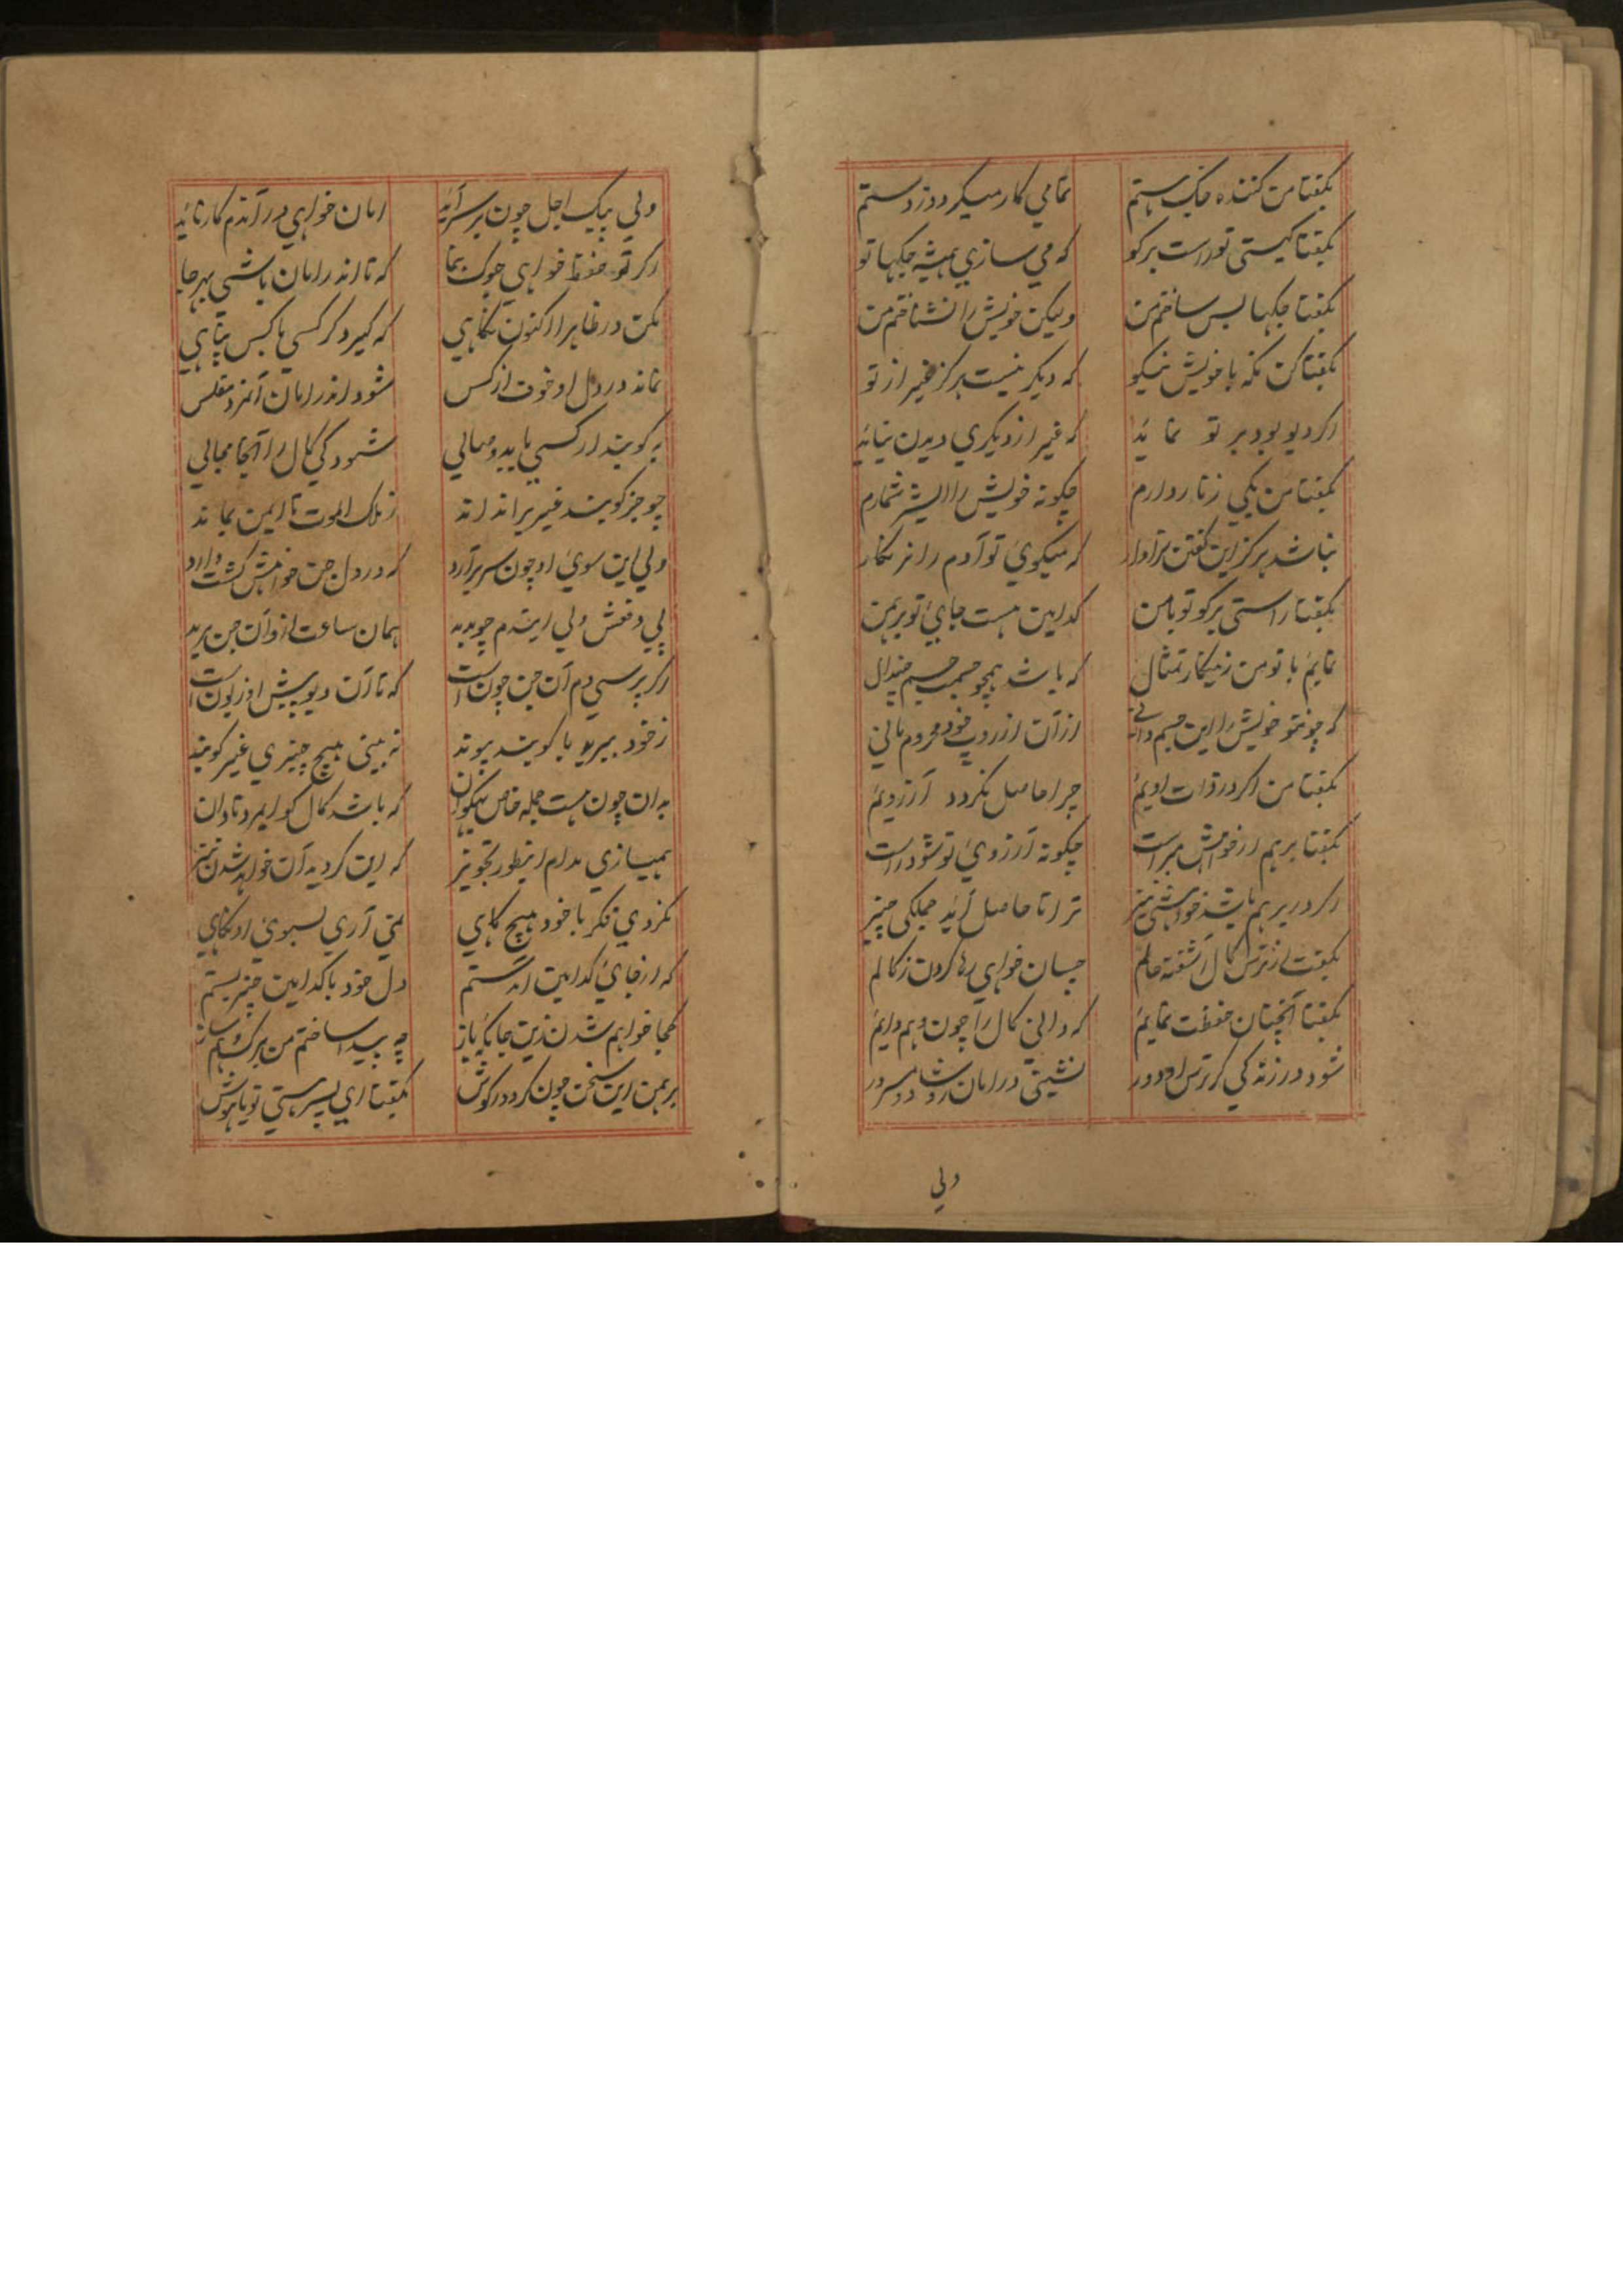 بگفتا من کننده جگ هستم تمامی کار میگردد ز دستم
بگفتا کیستی تو راست برگو که می سازی همیشه جگها تو
بگفتا جگها بس ساختم من ولیکن خویش را نشناختم من
بگفتا کن نگه با خویش نیکو که دیگر نیست هرگز غیر از تو
اگر دیو بود بر تو نماید که غیر از دیگری دیدن نیاید
بگفتا من یکی زنار دارم چگونه خویش را ایشر شمارم
نباشد هرگز این گفتن سزاوار که میگوئی تو آدم را نرنکار
بگفتا راستی برگو تو با من کدامین هست جای تو برهمن
نمایم با تو من زینکار تمثال که باشد همچو جسم چندال
که چون تو خویش را این جسم دانی از آن از روپ خود محروم مانی
بگفتا من اگر در ذات اویم چرا حاصل نگردد آرزویم
بگفتا برهم از خواهش مبراست چگونه آرزوی تو شود راست
اگر در برهم باشد خواهشی نیز ترا تا حاصل آید جملگی چیز
بگفت از ترس کال آشفته حالم چسان خواهی رها کردن ز کالم
بگفتا آنچنان حفظت نمایم که دانی کال را چون وهم دایم
شود در زندگی گر ترس او دور نشینی در امان شاد و مسرور
ولی
ولی پیک اجل چون بر سر آید امان خواهی در آندم کار ناید
اگر تو حفظ خواهی جوگ بنما که تا اندر امان باشی بهر جا
بکن در ظاهرا اکنون نگاهی که گیرد گر کسی با کس پناهی
نماند در دل او خوف از کس شود اندر امان آنمرد مفلس
به گویند ار کسی یابد وصالی شود کی کال را آنجا مجالی
چو جز گویند غیری را نداند ز ملک الموت تا ایمن بماند
ولی این سوی او چون سر برآرد که در دل جن خواهش گشت دارد
پی دفعش ولی ایندم چو بدید همان ساعت ازو آن جن برید
اگر پرسی دم آن جن چون است که تا آن دیو پیش او زبون است
ز خود ببرید با گویند پیوند نه بینی هیچ چیزی غیر گویند
بدان چون هست جمله خاص نیکوان که باشد کال کو ایمرد نادان
همیسازی مدام اینطور تجویز که این گردید آن خواهد شدن نیز
نکردی فکر با خود هیچ گاهی نمی آری بسوی او نگاهی
که از جای کدامین آمدستم دل خود با کدامین چیز بستم
کجا خواهم شدن زین جایگه باز چه پیدا ساختم من برگ و هم ساز
برهمن این سخن چون کرد در گوش بگفتا ای پسر هستی تو باهوش